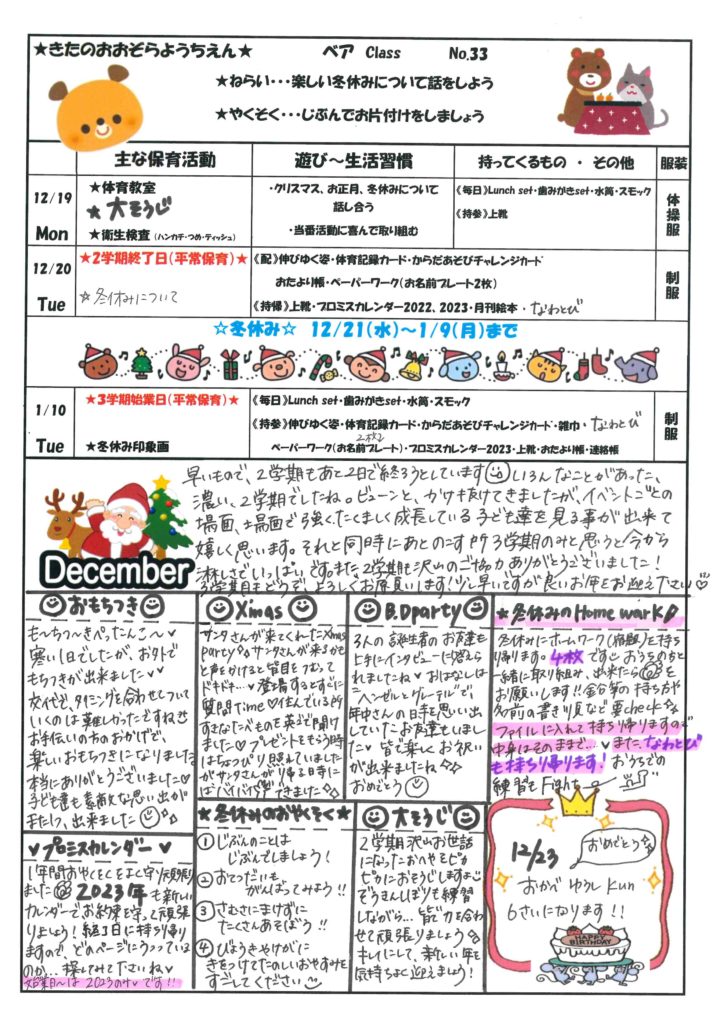 ★きたのおおぞらようちえん★ ベア Class No.33
★ねらい・・・楽しい冬休みについて話をしよう
★やくそく・・・じぶんでお片付けをしましょう
主な保育活動 遊び～生活習慣 持ってくるもの ・ その他 服装
12/19
Mon
★体育教室
★大そうじ
★衛生検査（ハンカチ・つめ・ティッシュ）
・クリスマス、お正月、冬休みについて
話し合う
・当番活動に喜んで取り組む
《毎日》Lunch set・歯みがきset・水筒・スモック
《持参》上靴
体操服
12/20
Tue
★2学期終了日(平常保育)★
☆冬休みについて
《配》伸びゆく姿・体育記録カード・からだあそびチャレンジカード
おたより帳・ペーパーワーク(お名前プレート2枚)
《持帰》上靴・プロミスカレンダー2022、2023・月刊絵本・なわとび
制服
☆冬休み☆ 12/21(水)～1/9(月)まで
1/10
Tue
★3学期始業日(平常保育)★
★冬休み印象画
《毎日》Lunch set・歯みがきset・水筒・スモック
《持参》伸びゆく姿・体育記録カード・からだあそびチャレンジカード・雑巾・なわとび
2枚
ペーパーワーク(お名前プレート)・プロミスカレンダー2023・上靴・おたより帳・連絡帳
制服
早いもので、2学期もあと2日で終ろうとしています いろんなことがあった、
濃い、2学期でしたね。ビューンと、かけ抜けてきましたが、イベントごとの
場面、場面で強く、たくましく成長している子ども達を見る事が出来て
嬉しく思います。それと同時にあとのこす所3学期のみと思うと今から
淋しさでいっぱいです。また、2学期も沢山のご協力ありがとうございました！
3学期もどうぞ、よろしくお願い致します！少し早いですが良いお年をお迎えください♡
December
おもちつき
もーちつーきぺったんこ～♥
寒い1日でしたが、お外で
もちつきが出来ました♥
交代で、タイミングを合わせてつい
ていくのは難しかったですね
お手伝いの方のおかげで、
楽しいおもちつきになりました
本当にありがとうございました♡
子ども達も素敵な思い出が
また1つ、出来ました
Xmas
サンタさんが来てくれたXmas
party♪サンタさんが来るかな
と声をかけると皆目をつむって
ドキドキ…♥登場するとすぐに
質問Time♡住んでいる所
すきなたべものを英語で聞け
ました♡プレゼントをもらう時
はちょっぴり照れていました
がサンタさんが帰る時に
はバイバイができました
B.Dparty
3人の誕生者のお友達も
上手にインタビューに答えら
れましたね♥おはなしは
"ヘンゼルとグレーテル"で
年中さんの日を思い出
していたお友達もいまし
た♥皆で楽しくお祝い
が出来ましたね
おめでとう
★冬休みのHome work
冬休みにホームワーク(宿題)を持ち
帰ります。4枚です おうちの方と
一緒に取り組み、出来たら
お願いします!!鉛筆の持ち方や
名前の書き順など要check☆
ファイルに入れて持ち帰りますので
中身はそのままで…♥また、なわとび
も持ち帰ります！おうちでの
練習もFight
♥プロミスカレンダー♥
1年間おやくそくをよく守り頑張り
ました 2023年も新しい
カレンダーでお約束を守って頑張
りましょう！終了日に持ち帰り
ますので、どのページにうつっている
のか…探してみてくださいね♥
始業日～は2023のみ♥です!!
★冬休みのおやくそく★
① じぶんのことは
じぶんでしましょう！
② おてつだいも
がんばってみよう!!
③ さむさにまけずに
たくさんあそぼう!!
④ びょうきやけがに
きをつけてたのしいおやすみを
すごしてください
大そうじ
2学期沢山お世話
になったおへやをピカ
ピカにおそうじしますよ
ぞうきんしぼりも練習
しながら…皆で力を合わ
せて頑張りましょう
キレイにして、新しい年を
気持ちよく迎えましょう！
おめでとう
12/23
おかべ ゆうし Kun
6さいになります！！
HAPPY
BIRTHDAY